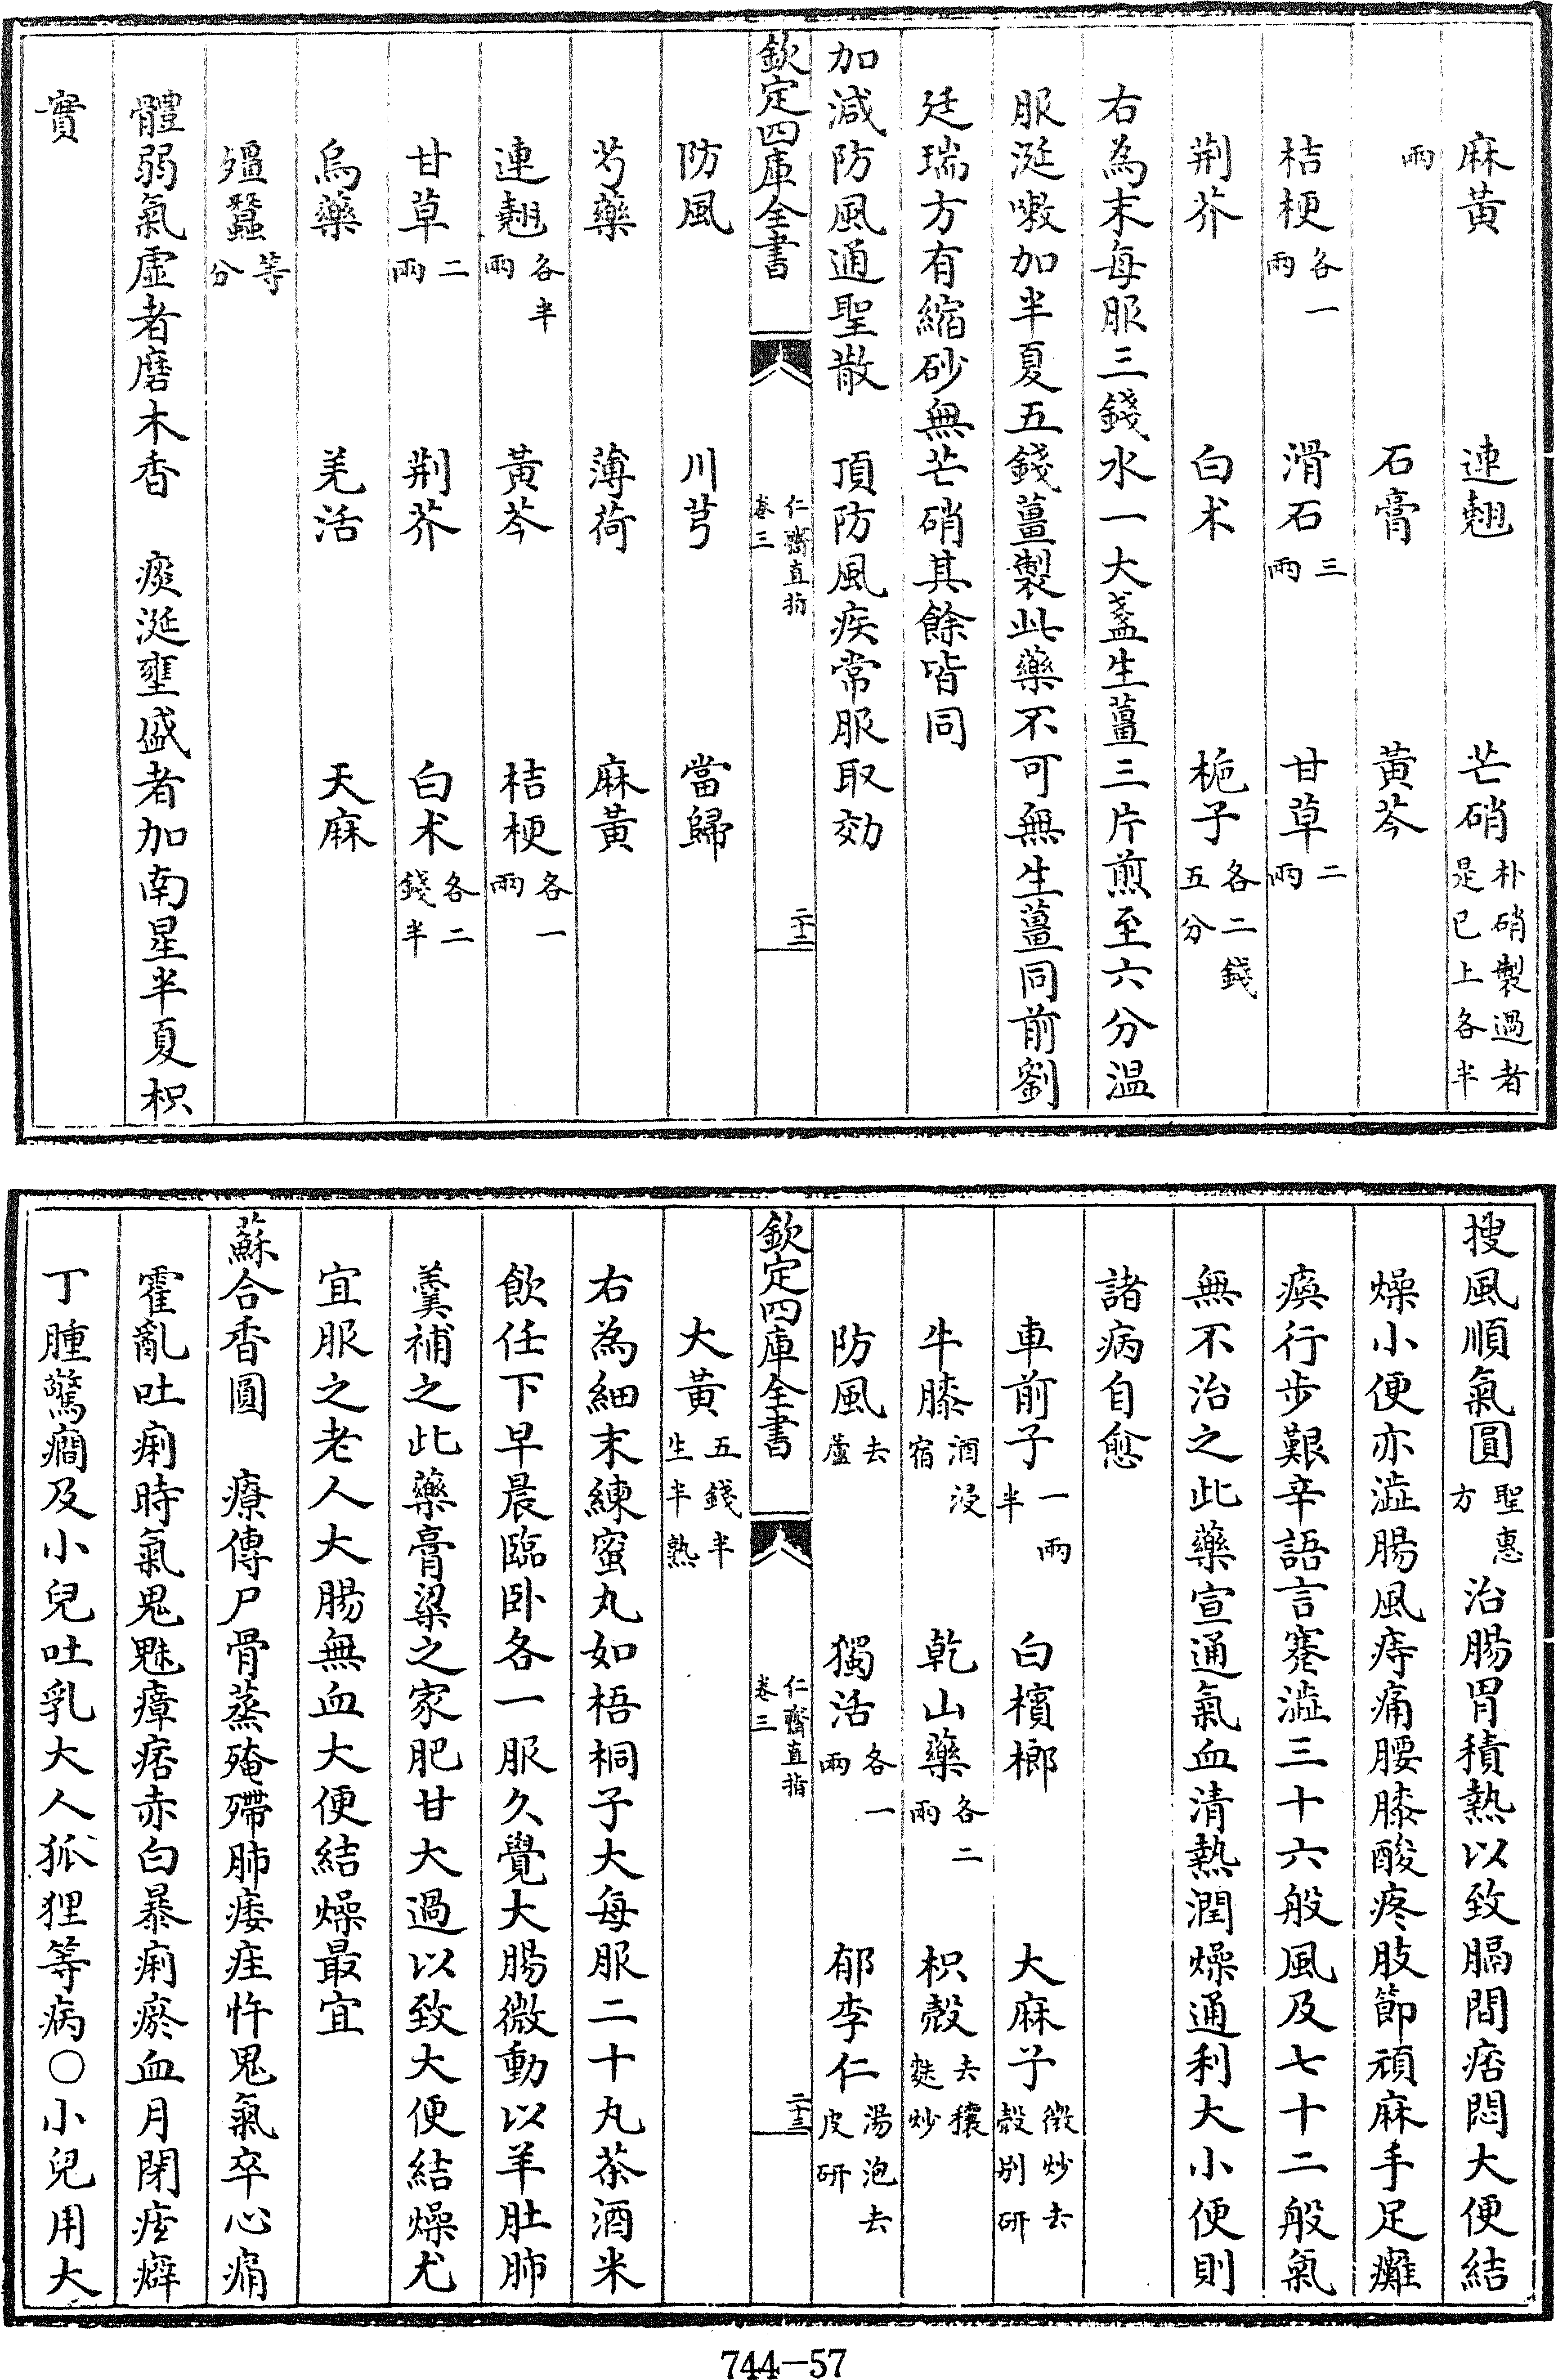 麻黃　連翹　芒硝朴硝製過者是已上各半
兩　石膏　黃芩
桔梗各一兩　滑石三兩　甘草二兩
荆芥　白术　梔子各二錢五分
右為末每服三錢水一大盞生薑三片煎至六分温
服涎嗽加半夏五錢薑製此藥不可無生薑同前劉
廷瑞方有縮砂無芒硝其餘皆同
加減防風通聖散　頂防風疾常服取効
欽定四庫全書　仁齋直指卷三　二十二
防風　川芎　當歸
芍藥　薄荷　麻黃
連翹各半兩　黃芩　桔梗各一兩
甘草二兩　荆芥　白术各二錢半
烏藥　羌活　天麻
殭蠶等分
體弱氣虛者磨木香　痰涎壅盛者加南星半夏枳
實
搜風順氣圓聖惠方治腸胃積熱以致膈間痞悶大便結
燥小便赤澁腸風痔痛腰膝酸疼肢節頑麻手足癱
瘓行步艱辛語言蹇澁三十六般風及七十二般氣
無不治之此藥宣通氣血清熱潤燥通利大小便則
諸病自愈
車前子一兩半　白檳榔　大麻子微炒去殼别研
牛膝酒浸宿　乾山藥各二兩　枳殼去穰麩炒
防風去蘆　獨活各一兩　郁李仁湯泡去皮研
欽定四庫全書　仁齋直指卷三　二十三
大黃五錢半生半熟
右為細末練蜜丸如梧桐子大每服二十丸茶酒米
飲任下早晨臨卧各一服久覺大腸微動以羊肚肺
羹補之此藥膏粱之家肥甘大過以致大便結燥尤
宜服之老人大腸無血大便結燥最宜
蘇合香圓　療傳尸骨蒸殗殢肺痿疰忤鬼氣卒心痛
霍亂吐痢時氣鬼魅瘴痞赤白暴痢瘀血月閉痃癖
丁腫驚癎及小兒吐乳大人狐狸等病〇小兒用大
744-57